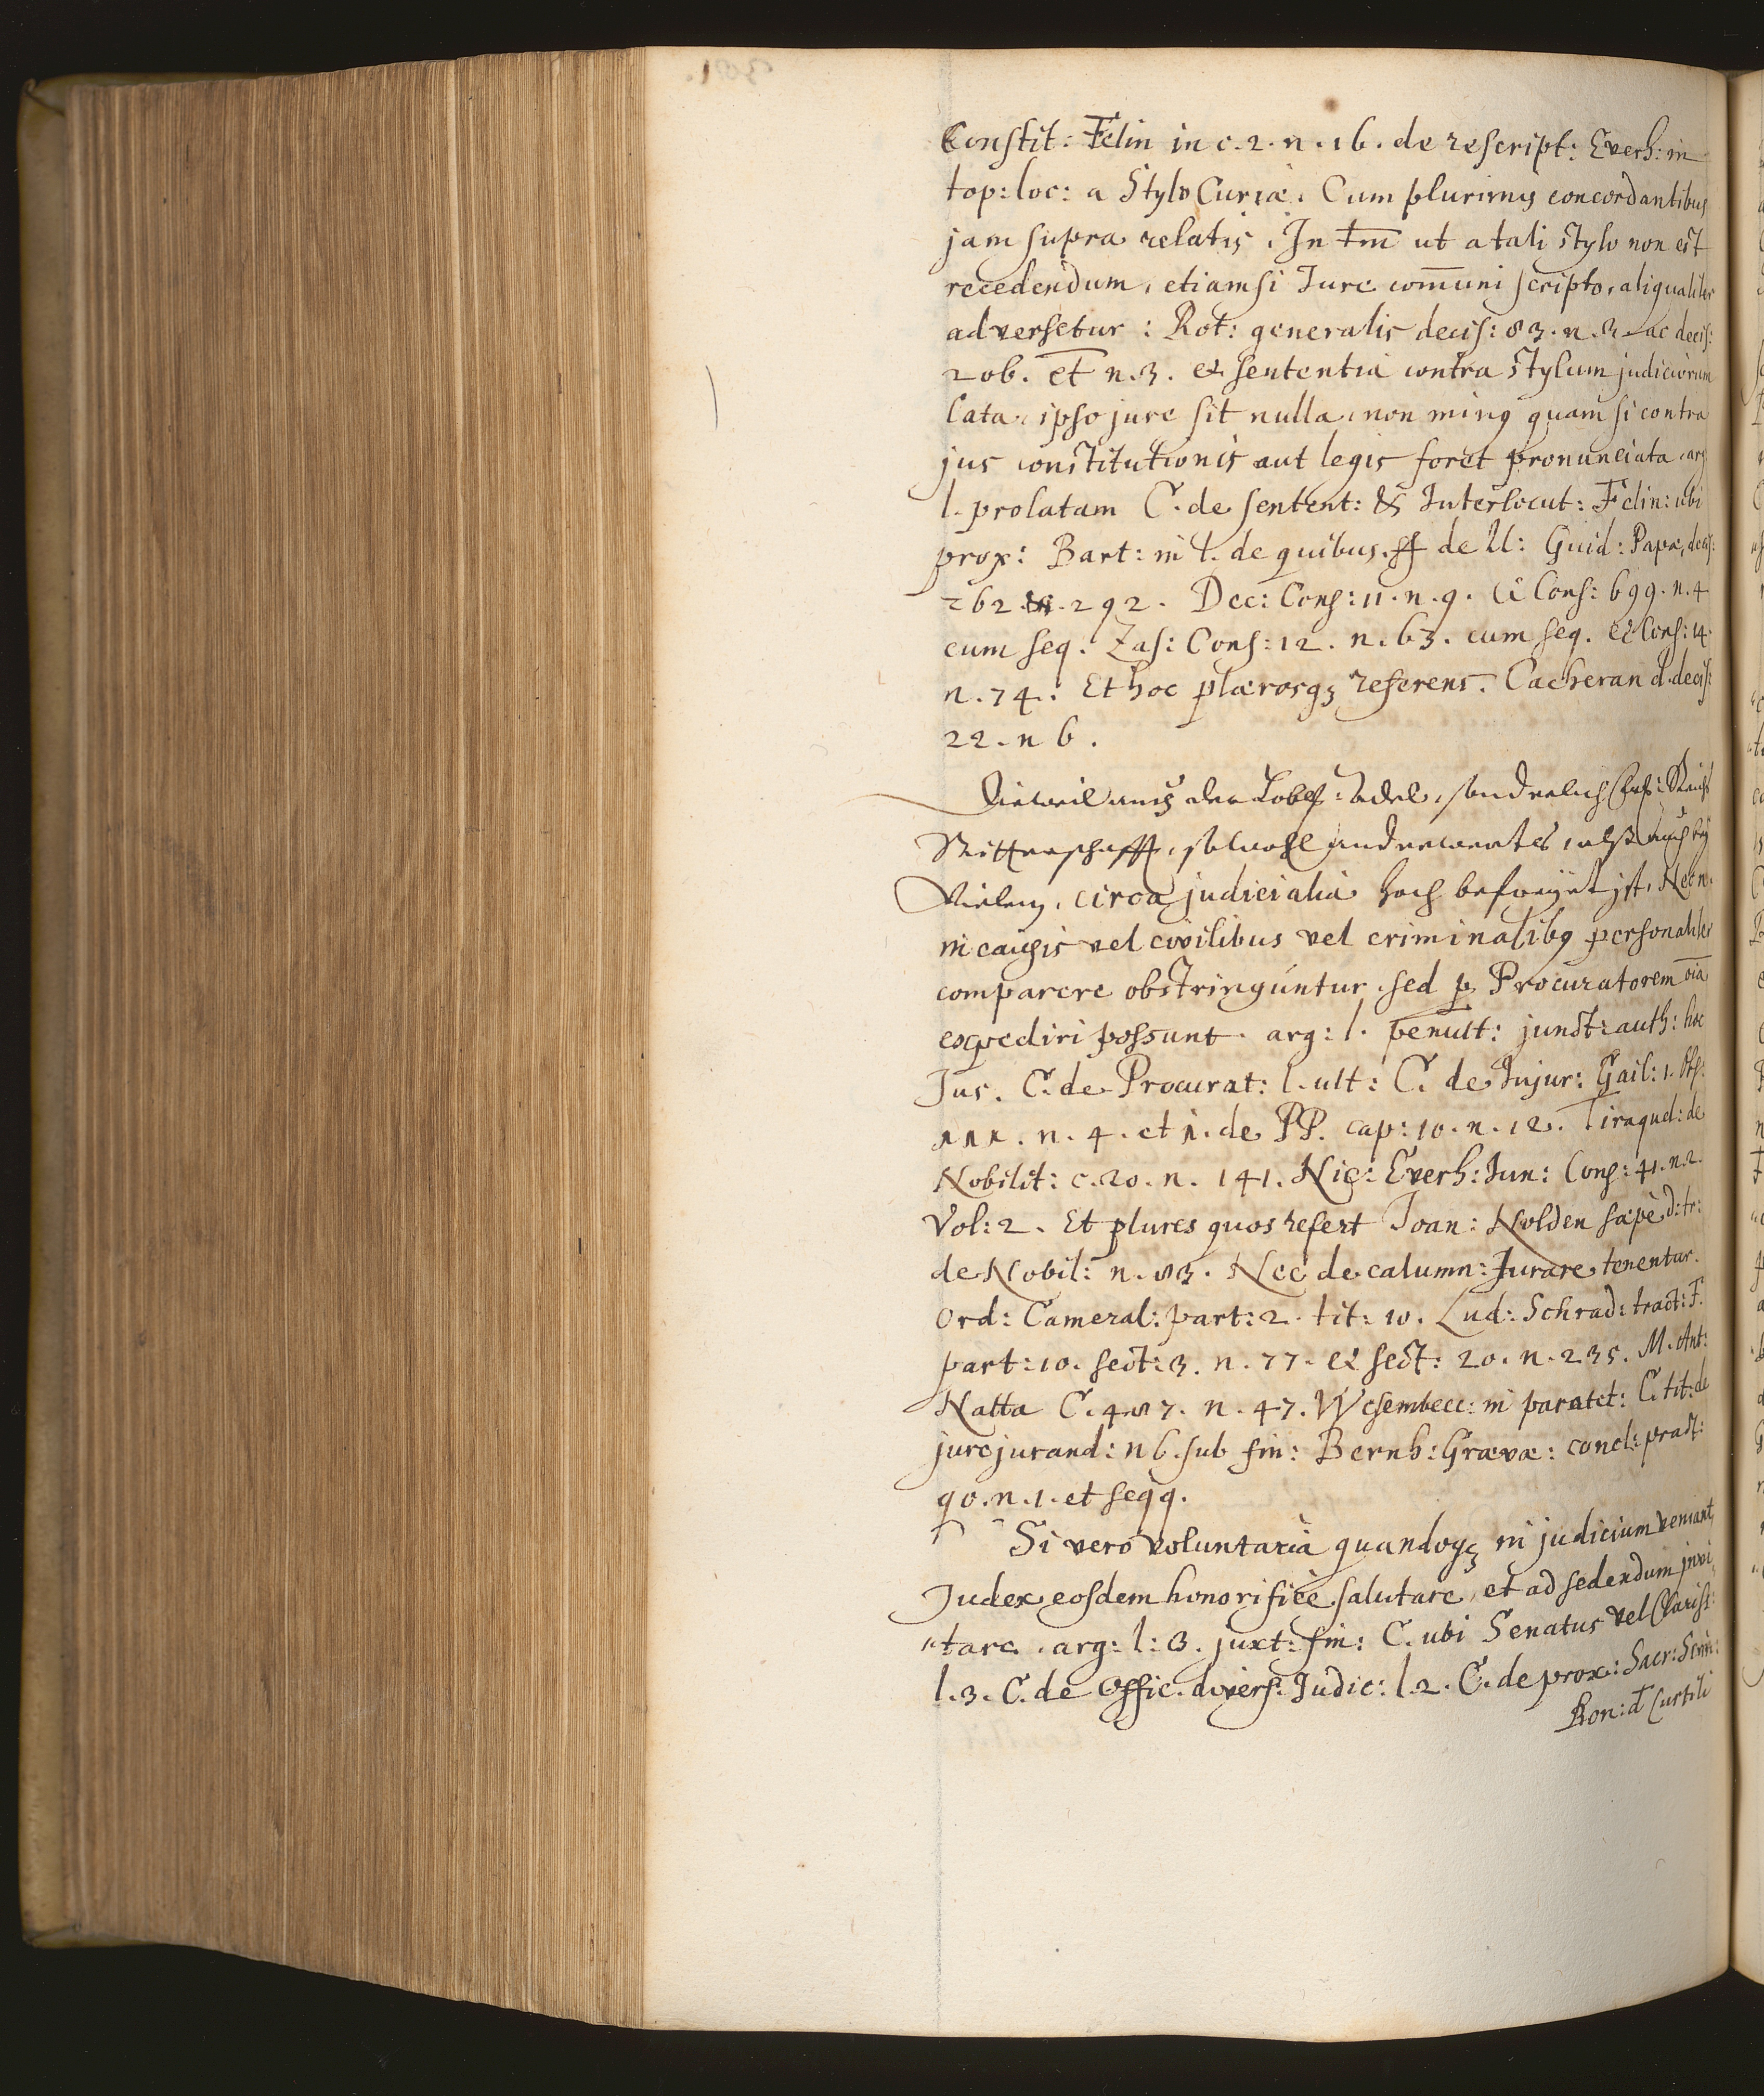 Constit: Felin in c. 2. n. 16. de rescript: Everh: in
top: loc: a Stylo Curiæ. Cum plurimis concordantibus
jam supra relatis. In tm̄ ut a tali stylo non est
recedendum, etiamsi Jure com̄uni scripto, aliqualiter
adversetur: Rot: generalis decis: 83. n. 3. ac decis:
206. et n. 3. et sententia contra stylum judiciorum
lata, ipso jure sit nulla, non minꝰ quam si contra
jus constitutionis aut legis foret pronunciata. arg
l. prolatam C. de sentent: & Interlocut: Felin: ubi
prox: Bart: in l. de quibus. ff de ll: Guid: Papæ, decis:
262. 292. Dec: Cons: 11. n. 9. et Cons: 699. n. 4
cum seq. Zas: Cons: 12. n. 63. cum seq. et Cons: 14.
n. 74: Et hoc plærosqꝫ referens. Cacheran d. decis:
22. n 6.
Dieweil auch der Lobl: Adel, sonderlich Reichs
Ritterschafft, sowohl anderwerts, alß auch bey
Vielen, circa judicialia hoch befreÿet ist, Nec n.
in causis vel civilibus vel criminalibꝰ personaliter
comparere obstringúntur, sed ꝑ Procuratorem oĩa
expediri possunt. arg: l. penult: junct: auth: hoc
Jus. C. de Procurat: l. ult: C. de Injur: Gail: 1. obs:
n. 4. et 1. de PP. cap: 10. n. 12. Tiraquel: de
Nobilit: c. 20. n. 141. Nic: Everh: Jun: Cons: 41. n. 2.
Vol: 2. Et plures quos refert Joan: Nolden sæpè d: tr:
de Nobil: n. 83. Nec de calumn: Jurare tenentur.
Ord: Cameral: part: 2. tit: 10. Lud: Schrad: tract: F.
part: 10. sect: 3. n. 77. et sect: 20. n. 235. M. Ant:
Natta C. 487. n. 47. Wesembecc: in paratit: C. tit: de
jurejurand: n 6. sub fin: Bernh: Grævæ: concl: pract:
90. n. 1. et seqq.
Si vero voluntariè quandoqꝫ in judicium veniant,
Judex eosdem honorificè salutare, et ad sedendum invi
tare. arg: l: 3. juxt: fin: C. ubi Senatus vel Clariss:
l. 3. C. de Offic. divers: Judic: l. 2. C. de prox: Sacr: Scrin:
Bon: d Curtili